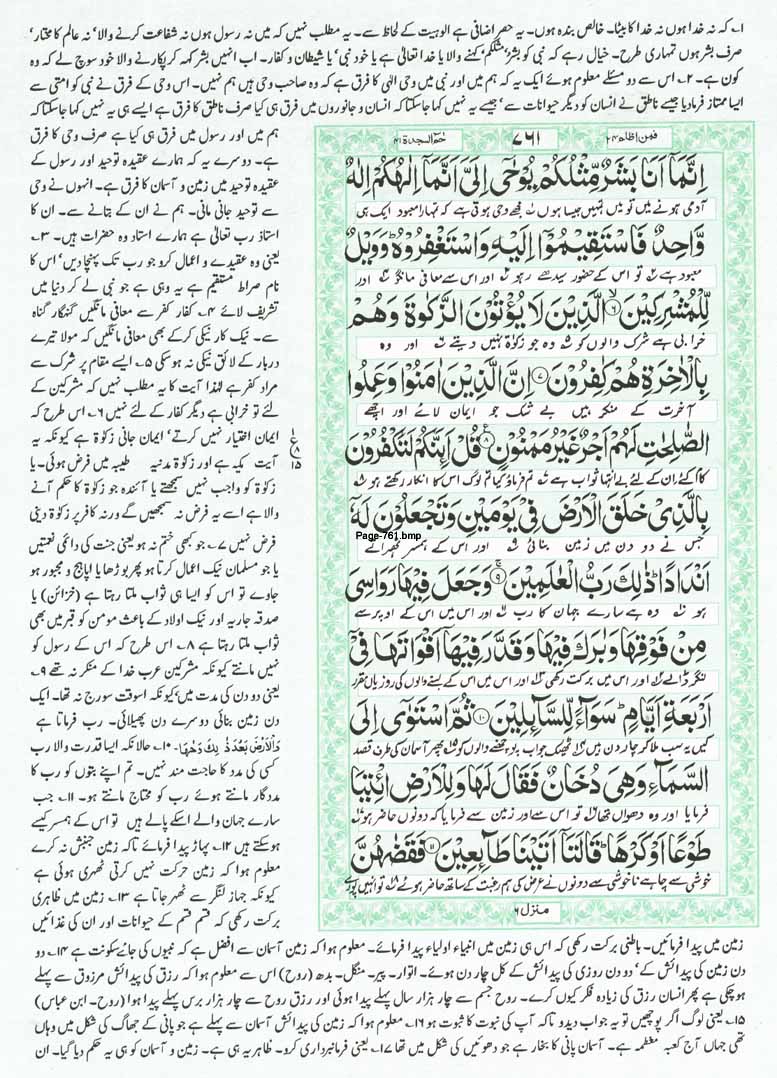 ۱؎ کہ نہ خدا ہوں نہ خدا کا بیٹا۔ خالص بندہ ہوں۔ یہ حصر اضافی ہے الوہیت کے لحاظ سے۔ یہ مطلب نہیں کہ میں نہ رسول ہوں نہ شفاعت کرنے والا' نہ عالم کا مختار'
صرف بشر ہوں تمہاری طرح۔ خیال رہے کہ نبی کو بشر' مثلکم' کہنے والا یا خدا تعالیٰ ہے یا خود نبی' یا شیطان و کفار۔ اب انہیں بشر کہہ کر پکارنے والا خود سوچ لے کہ وہ
کون ہے۔ ۲؎ اس سے دو مسئلے معلوم ہوئے ایک یہ کہ ہم میں اور نبی میں وحی الٰہی کا فرق ہے کہ وہ صاحب وحی ہیں ہم نہیں۔ اس وحی کے فرق نے نبی کو امتی سے
ایسا ممتاز فرما دیا جیسے ناطق نے انسان کو دیگر حیوانات سے' جیسے یہ نہیں کہا جا سکتا کہ انسان و جانوروں میں فرق ہی کیا صرف ناطق کا فرق ہے ایسے ہی یہ نہیں کہا جا سکتا کہ
فمن اظلم ۲۴
۷۶۱
حٰم السجدۃ ۴۱
اِنَّمَاۤ اَنَا بَشَرٌ مِّثْلُكُمْ یُوْحٰۤى اِلَیَّ اَنَّمَاۤ اِلٰهُكُمْ اِلٰهٌ
آدمی ہونے میں تو میں تمہیں جیسا ہوں مجھے وحی ہوتی ہے کہ تمہارا معبود ایک ہی
وَّاحِدٌ فَاسْتَقِیْمُوْۤا اِلَیْهِ وَ اسْتَغْفِرُوْهُؕ وَ وَیْلٌ
معبود ہے تو اس کے حضور سیدھے رہو اور اس سے معافی مانگو اور
لِّلْمُشْرِكِیْنَۙ۶ الَّذِیْنَ لَا یُؤْتُوْنَ الزَّكٰوةَ وَ هُمْ
خرابی ہے شرک والوں کو وہ جو زکوٰۃ نہیں دیتے اور وہ
بِالْاٰخِرَةِ هُمْ كٰفِرُوْنَ۷ اِنَّ الَّذِیْنَ اٰمَنُوْا وَ عَمِلُوا
آخرت کے منکر ہیں بے شک جو ایمان لائے اور اچھے
الصّٰلِحٰتِ لَهُمْ اَجْرٌ غَیْرُ مَمْنُوْنٍ۸ قُلْ اَىِٕنَّكُمْ لَتَكْفُرُوْنَ
کام کئے ان کے لئے بے انتہا ثواب ہے تم فرماؤ کیا تم لوگ اس کا انکار رکھتے ہو
بِالَّذِیْ خَلَقَ الْاَرْضَ فِیْ یَوْمَیْنِ وَ تَجْعَلُوْنَ لَهٗۤ
Page-761.bmp
جس نے دو دن میں زمین بنائی اور اس کے ہمسر ٹھہراتے
اَنْدَادًاؕ ذٰلِكَ رَبُّ الْعٰلَمِیْنَ۹ وَ جَعَلَ فِیْهَا رَوَاسِیَ
ہو وہ ہے سارے جہان کا رب اور اس میں اس کے اوپر سے
مِنْ فَوْقِهَا وَ بٰرَكَ فِیْهَا وَ قَدَّرَ فِیْهَاۤ اَقْوَاتَهَا فِیْۤ
لنگر ڈالے اور اس میں برکت رکھی اور اس میں اس کے بسنے والوں کی روزیاں مقرر
اَرْبَعَةِ اَیَّامٍؕ سَوَآءً لِّلسَّآىِٕلِیْنَ۱۰ ثُمَّ اسْتَوٰۤى اِلَى
کیں یہ سب ملا کر چار دن ہیں ٹھیک جواب پوچھنے والوں کو پھر آسمان کی طرف قصد
السَّمَآءِ وَ هِیَ دُخَانٌ فَقَالَ لَهَا وَ لِلْاَرْضِ ائْتِیَا
فرمایا اور وہ دھواں تھا تو اس سے اور زمین سے فرمایا کہ دونوں حاضر ہو
طَوْعًا اَوْ كَرْهًاؕ قَالَتَاۤ اَتَیْنَا طَآىِٕعِیْنَ۱۱ فَقَضٰهُنَّ
خوشی سے چاہے ناخوشی سے دونوں نے عرض کی ہم رغبت کے ساتھ حاضر ہوئے تو انہیں پورے
منزل ۶
ع ۸ ۱۵
ہم میں اور رسول میں فرق ہی کیا ہے صرف وحی کا فرق
ہے۔ دوسرے یہ کہ ہمارے عقیدہ توحید اور رسول کے
عقیدہ توحید میں زمین و آسمان کا فرق ہے۔ انہوں نے وحی
سے توحید جانی مانی۔ ہم نے ان کے بتانے سے۔ ان کا
استاذ رب تعالیٰ ہے ہمارے استاد وہ حضرات ہیں۔ ۳؎
یعنی وہ عقیدے و اعمال کرو جو رب تک پہنچا دیں' اس کا
نام صراط مستقیم ہے یہ وہی ہے جو نبی لے کر دنیا میں
تشریف لائے ۴؎ کفار کفر سے معافی مانگیں گنہگار گناہ
سے۔ نیک کار نیکی کرکے بھی معافی مانگیں کہ مولا تیرے
دربار کے لائق نیکی نہ ہو سکی ۵؎ ایسے مقام پر شرک سے
مراد کفر ہے لہٰذا آیت کا یہ مطلب نہیں کہ مشرکین کے
لئے تو خرابی ہے دیگر کفار کے لئے نہیں ۶؎ اس طرح کہ
ایمان اختیار نہیں کرتے' ایمان جانی زکوٰۃ ہے کیونکہ یہ
آیت مکیہ ہے اور زکوٰۃ مدینہ طیبہ میں فرض ہوئی۔ یا
زکوٰۃ کو واجب نہیں سمجھتے یا آئندہ جو زکوٰۃ کا حکم آنے
والا ہے اسے یہ فرض نہ سمجھیں گے ورنہ کافر پر زکوٰۃ دینی
فرض نہیں ۷؎ جو کبھی ختم نہ ہو یعنی جنت کی دائمی نعمتیں
یا جو مسلمان نیک اعمال کرتا ہو پھر بوڑھا یا اپاہج و مجبور ہو
جاوے تو اس کو ایسا ہی ثواب ملتا رہتا ہے (خزائن) یا
صدقہ جاریہ اور نیک اولاد کے باعث مومن کو قبر میں بھی
ثواب ملتا رہتا ہے ۸؎ اس طرح کہ اس کے رسول کو
نہیں مانتے کیونکہ مشرکین عرب خدا کے منکر نہ تھے ۹؎
یعنی دو دن کی مدت میں' کیونکہ اسوقت سورج نہ تھا۔ ایک
دن زمین بنائی دوسرے دن پھیلائی۔ رب فرماتا ہے
وَالْاَرْضَ بَعْدَ ذٰلِكَ دَحٰهَا۔ ۱۰؎ حالانکہ ایسا قدرت والا رب
کسی کی مدد کا حاجت مند نہیں۔ تم اپنے بتوں کو رب کا
مددگار مانتے ہوئے رب کو محتاج مانتے ہو۔ ۱۱؎ جب
سارے جہان والے اسکے پالے ہیں تو اس کے ہمسر کیسے
ہوسکتے ہیں ۱۲؎ پہاڑ پیدا فرمائے تاکہ زمین جنبش نہ کرے
معلوم ہوا کہ زمین حرکت نہیں کرتی ٹھہری ہوئی ہے
کیونکہ جہاز لنگر سے ٹھہر جاتا ہے ۱۳؎ زمین میں ظاہری
برکت رکھی کہ قسم قسم کے حیوانات اور ان کی غذائیں
زمین میں پیدا فرمائیں۔ باطنی برکت رکھی کہ اس ہی زمین میں انبیاء اولیاء پیدا فرمائے۔ معلوم ہوا کہ زمین آسمان سے افضل ہے کہ نبیوں کی جائے سکونت ہے ۱۴؎ دو
دن زمین کی پیدائش کے' دو دن روزی کی پیدائش کے کل چار دن ہوئے۔ اتوار۔ پیر۔ منگل۔ بدھ (روح) اس سے معلوم ہوا کہ رزق کی پیدائش مرزوق سے پہلے
ہو چکی ہے پھر انسان رزق کی زیادہ فکر کیوں کرے۔ روح جسم سے چار ہزار سال پہلے پیدا ہوئی اور رزق روح سے چار ہزار برس پہلے پیدا ہوا (روح۔ ابن عباس)
۱۵؎ یعنی لوگ اگر پوچھیں تو یہ جواب دیدو تاکہ آپ کی نبوت کا ثبوت ہو ۱۶؎ معلوم ہوا کہ زمین کی پیدائش آسمان سے پہلے ہے جو پانی کے جھاگ کی شکل میں وہاں
تھی جہاں آج کعبہ معظمہ ہے۔ آسمان پانی کا بخار ہے جو دھوئیں کی شکل میں تھا ۱۷؎ یعنی فرمانبرداری کرو۔ ظاہر یہ ہی ہے۔ زمین و آسمان کو ہی یہ حکم دیا گیا۔ ان